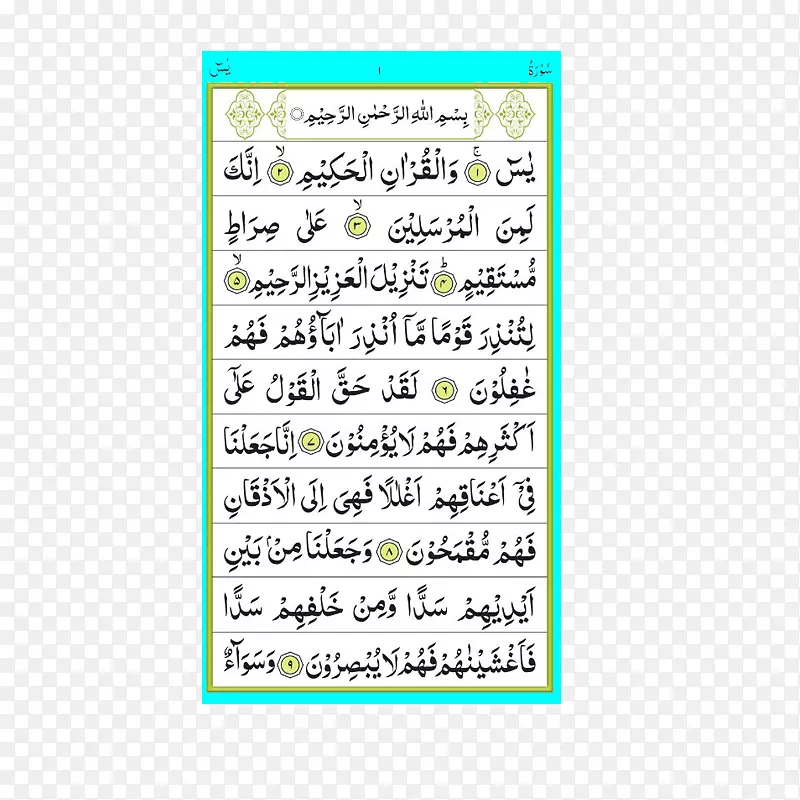 سُوْرَةُ ١ يٰسٓ
بِسْمِ اللّٰهِ الرَّحْمٰنِ الرَّحِيْمِ
يٰسٓ ۚ﴿١﴾ وَالْقُرْاٰنِ الْحَكِيْمِ ۙ﴿٢﴾ اِنَّكَ
لَمِنَ الْمُرْسَلِيْنَ ۙ﴿٣﴾ عَلٰى صِرَاطٍ
مُّسْتَقِيْمٍ ؕ﴿٤﴾ تَنْزِيْلَ الْعَزِيْزِ الرَّحِيْمِ ۙ﴿٥﴾
لِتُنْذِرَ قَوْمًا مَّاۤ اُنْذِرَ اٰبَآؤُهُمْ فَهُمْ
غٰفِلُوْنَ ﴿٦﴾ لَقَدْ حَقَّ الْقَوْلُ عَلٰۤى
اَكْثَرِهِمْ فَهُمْ لَا يُؤْمِنُوْنَ ﴿٧﴾ اِنَّا جَعَلْنَا
فِيْۤ اَعْنَاقِهِمْ اَغْلٰلًا فَهِيَ اِلَى الْاَذْقَانِ
فَهُمْ مُّقْمَحُوْنَ ﴿٨﴾ وَجَعَلْنَا مِنْۢ بَيْنِ
اَيْدِيْهِمْ سَدًّا وَّمِنْ خَلْفِهِمْ سَدًّا
فَاَغْشَيْنٰهُمْ فَهُمْ لَا يُبْصِرُوْنَ ﴿٩﴾ وَسَوَآءٌ